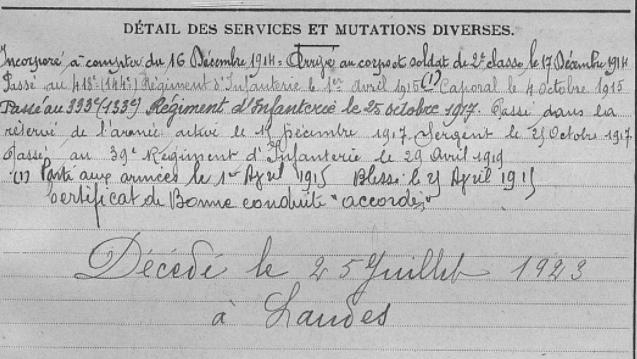 DÉTAIL DES SERVICES ET MUTATIONS DIVERSES.
Incorporé à compter du 16 Décembre 1914 = Arrivé au corps et soldat de 2e classe, le 17 Décembre 1914
Passé au 418e (144e) Régiment d'Infanterie le 1er avril 1915 (1) Caporal le 4 Octobre 1915
Passé au 333e (133e) Régiment d'Infanterie le 25 octobre 1917. Passé dans la
réserve de l'armée active le 15 Décembre 1917. Sergent le 25 Octobre 1917
Passé au 39e Régiment d'Infanterie le 29 Avril 1919
(1) Parti aux armées le 1er April 1915 Blessé le 25 April 1915
Certificat de Bonne conduite "accordé"
Décédé le 25 Juillet 1923
à Landes